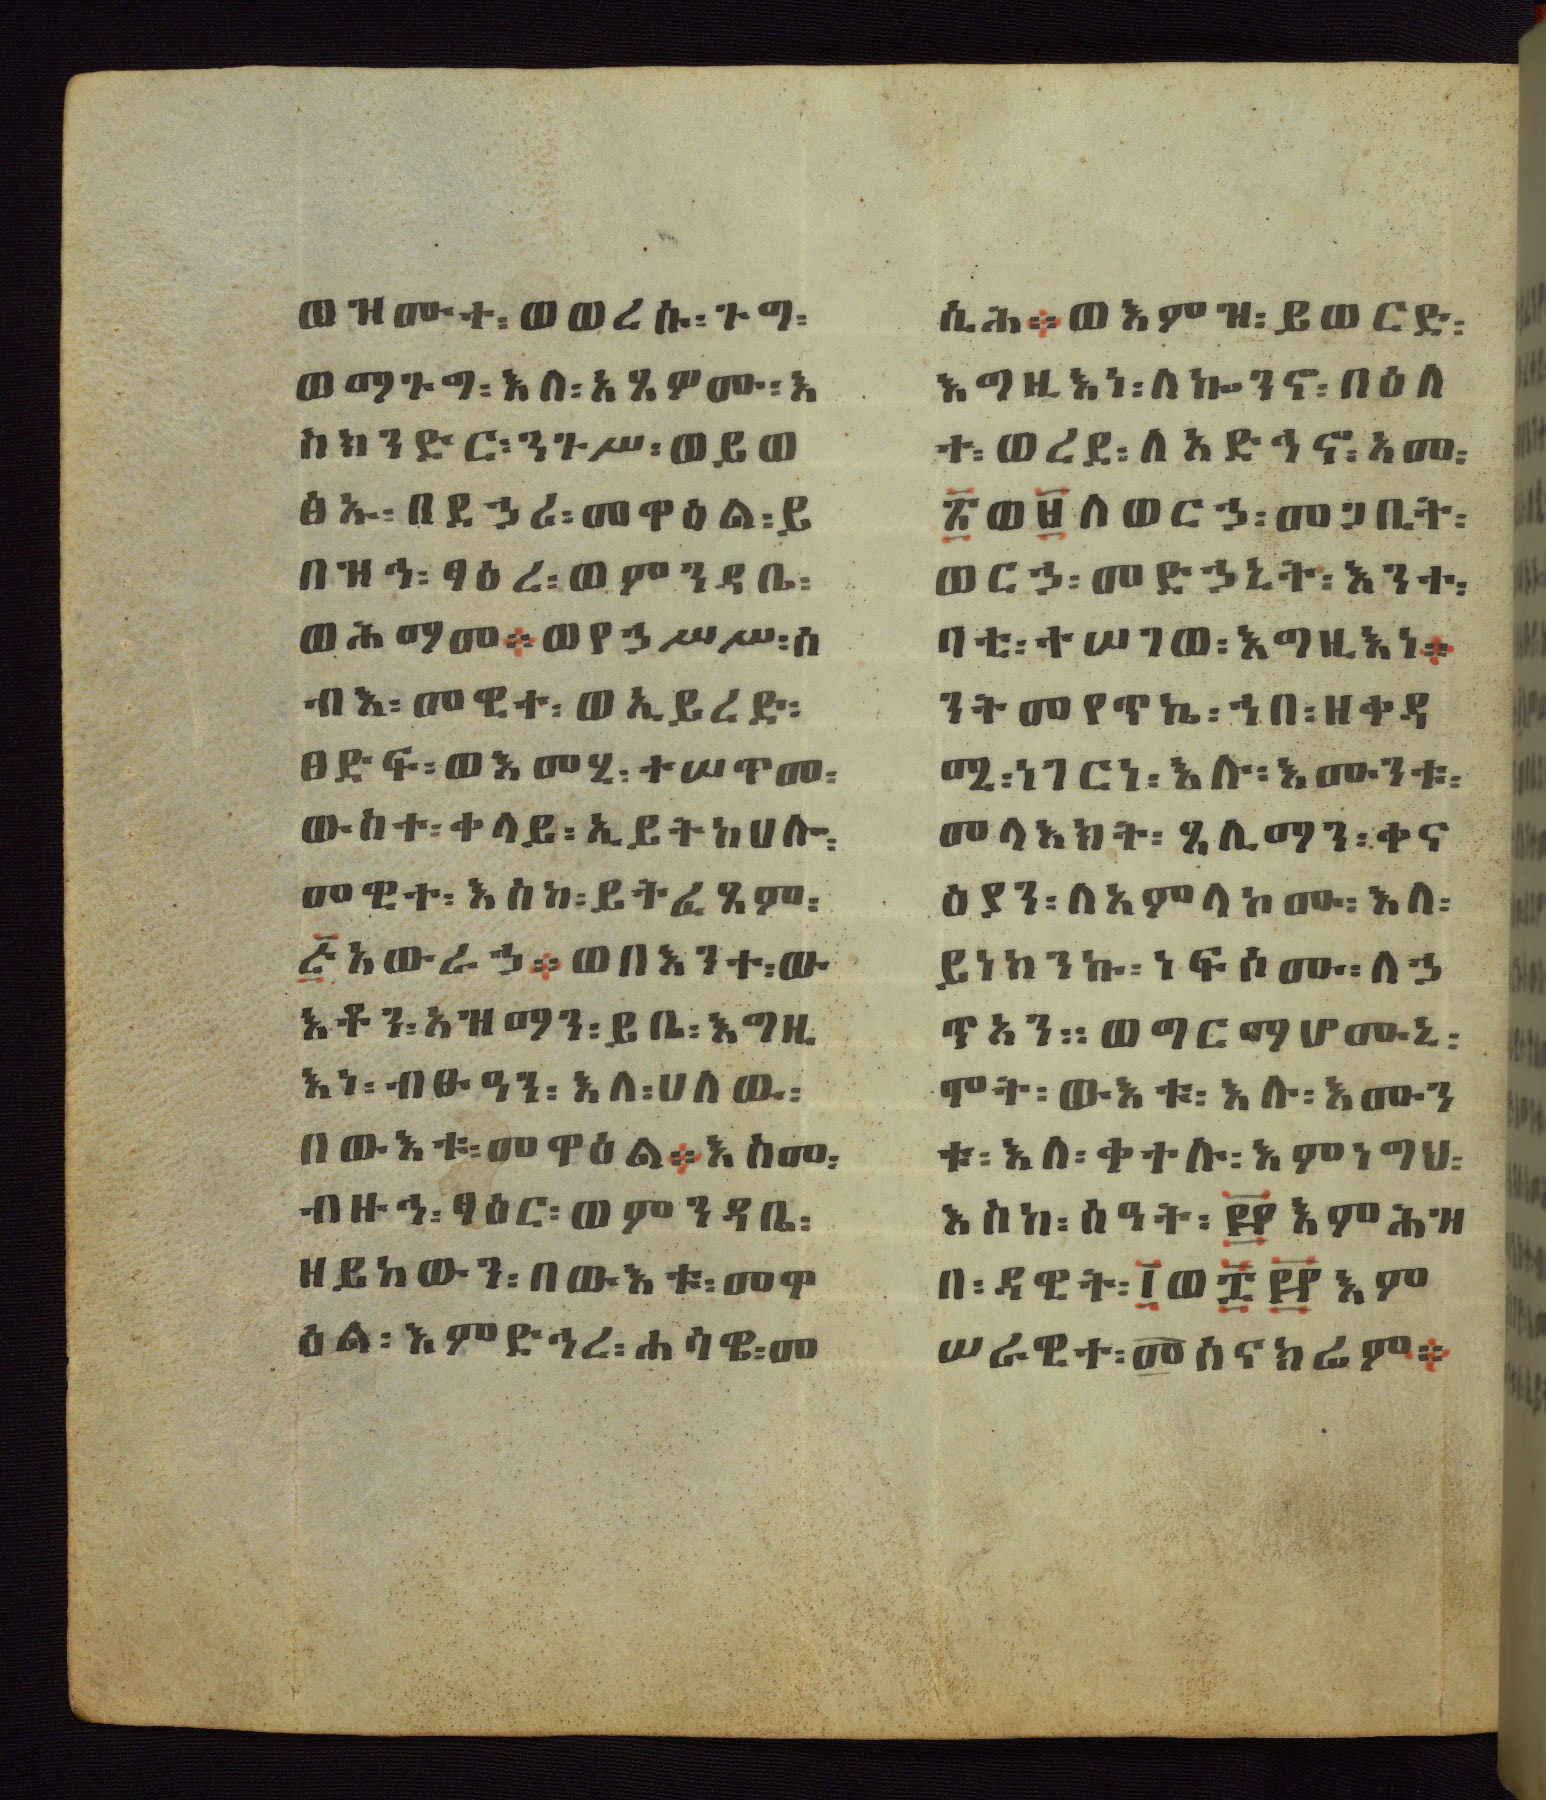 ወዝሙተ፡ ወወረሱ፡ ጉግ፡
ወማጉግ፡ እለ፡ አጺዎሙ፡ እ
ስክንድር፡ ንጉሥ፡ ወይወ
ፅኡ፡ በደኃሪ፡ መዋዕል፡ ይ
በዝኅ፡ ፃዕረ፡ ወምንዳቤ፡
ወሕማመ። ወየኃሥሥ፡ ሰ
ብእ፡ መዊተ፡ ወኢይረድ፡
ፀድፍ፡ ወእመሂ፡ ተሠጥመ፡
ውስተ፡ ቀላይ፡ ኢይትከሀሎ፡
መዊተ፡ እስከ፡ ይትፌጸም፡
፭አውራኃ። ወበእንተ፡ ው
እቶን፡ አዝማን፡ ይቤ፡ እግዚ
እነ፡ ብፁዓን፡ እለ፡ ሀለዉ፡
በውእቱ፡ መዋዕል። እስመ፡
ብዙኅ፡ ፃዕር፡ ወምንዳቤ፡
ዘይከውን፡ በውእቱ፡ መዋ
ዕል፡ እምድኅረ፡ ሐሳዌ፡ መ
ሲሕ። ወእምዝ፡ ይወርድ፡
እግዚእነ፡ ለኰንኖ፡ በዕለ
ተ፡ ወረደ፡ ለአድኅኖ፡ አመ፡
፳ወ፱ለወርኃ፡ መጋቢት፡
ወርኃ፡ መድኃኒት፡ እንተ፡
ባቲ፡ ተሠገወ፡ እግዚእነ።
ንትመየጥኬ፡ ኀበ፡ ዘቀዳ
ሚ፡ ነገርነ፡ እሉ፡ እሙንቱ፡
መላእክት፡ ጺሊማን፡ ቀና
ዕያን፡ ለአምላከሙ፡ እለ፡
ይነከንኩ፡ ነፍሰሙ፡ ለኃ
ጥአን፡፡ ወግርማሆሙኒ፡
ምት፡ ውእቱ፡ እሉ፡ እሙን
ቱ፡ እለ፡ ቀተሉ፡ እምነግህ፡
እስከ፡ ሰዓት፡ ፸፻እምሕዝ
በ፡ ዳዊት፡ ፩ወ፰፸፻እም
ሠራዊተ፡ መሰናክሬም።